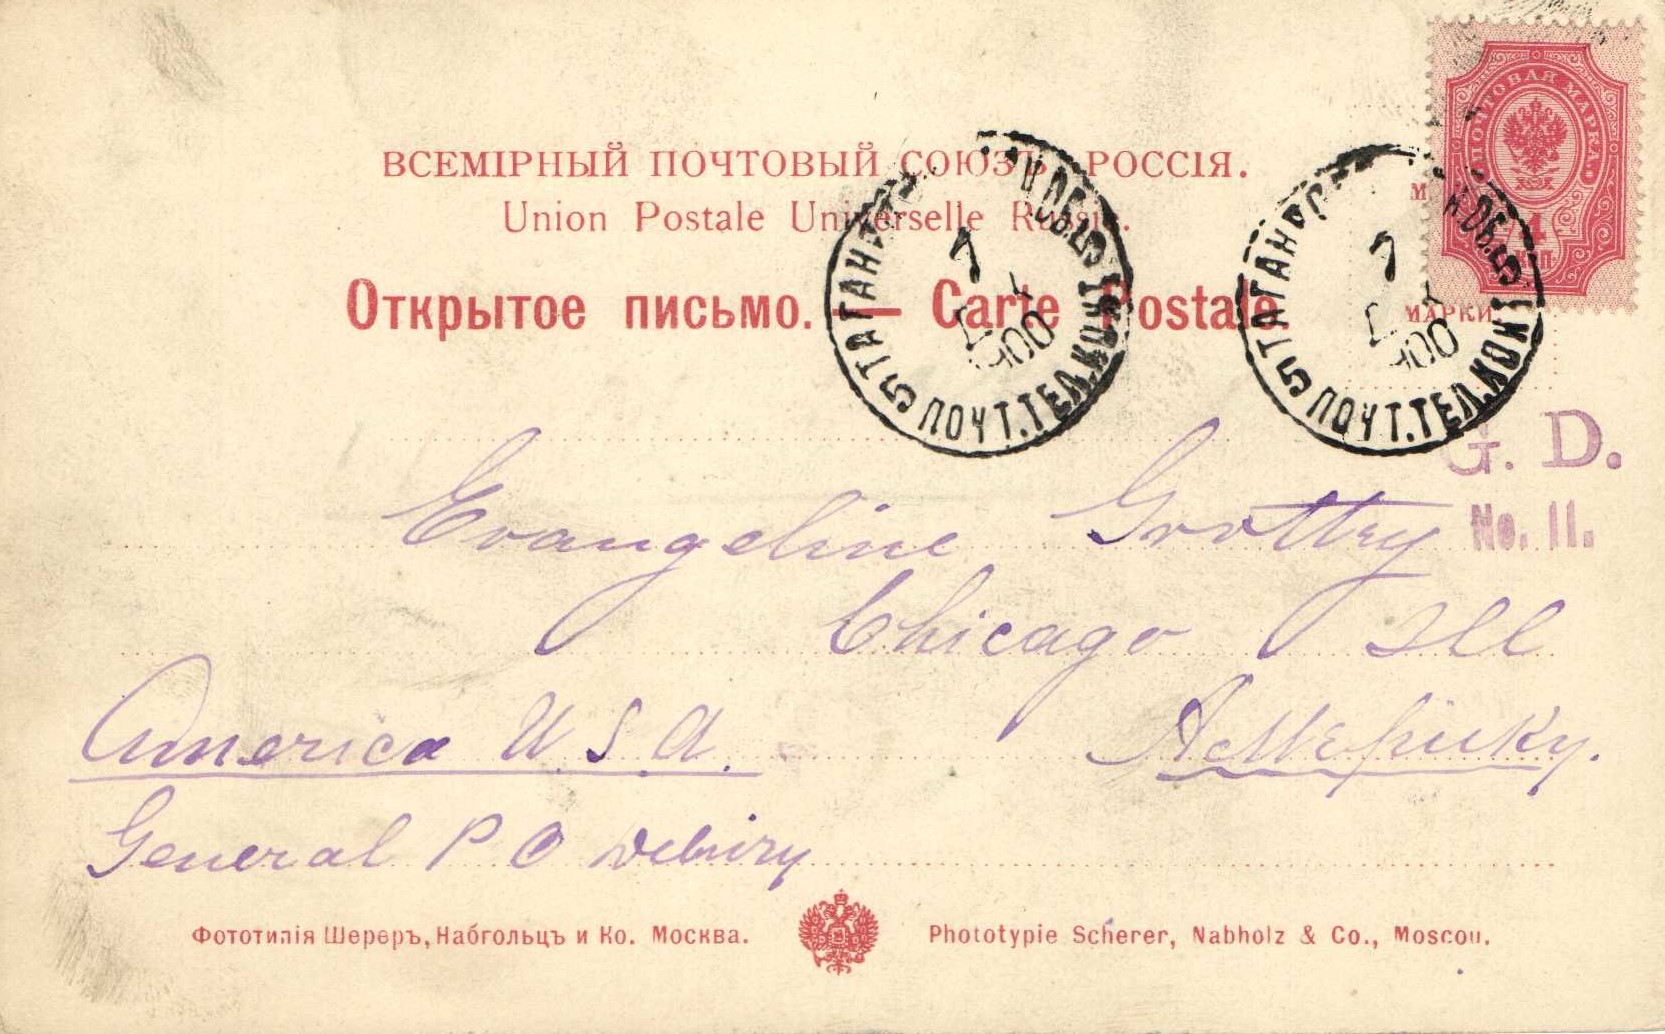 ВСЕМІРНЫЙ ПОЧТОВЫЙ СОЮЗЪ. РОССІЯ.
Union Postale Universelle Russie.
Открытое письмо. — Carte Postale.
ПОЧТОВАЯ МАРКА
4
МАРКИ
ТАГАНРОГЪ ОБ.
5 ПОЧТ.ТЕЛ.КОН.
7
1900
ТАГАНРОГЪ ОБ.
5 ПОЧТ.ТЕЛ.КОН.
7
1900
G. D.
No. 11.
Evangeline Grottry
Chicago Ill
America U.S.A.
Америку.
General P O Delivry
Фототипія Шереръ, Набгольцъ и Ко. Москва.
Phototypie Scherer, Nabholz & Co., Moscou.